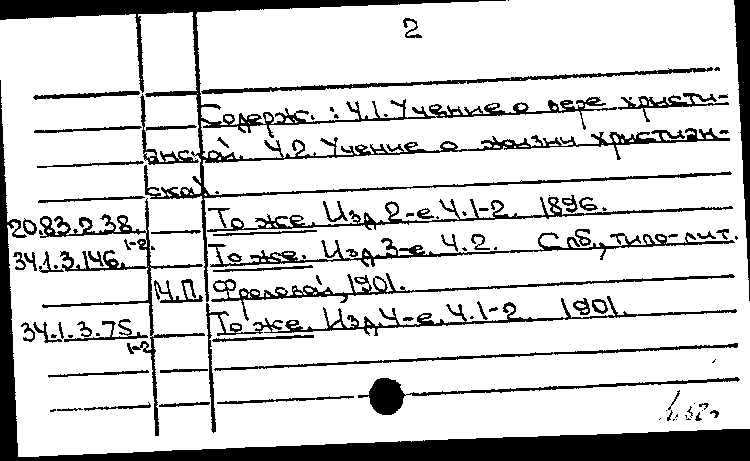 2
Содерж.: Ч.1. Учение о вере христи-
анской. Ч.2. Учение о жизни христиан-
ской.
20.83.2.38. То же. Изд. 2-е. Ч.1-2. 1896.
1-2.
34.1.3.146. То же. Изд. 3-е. Ч.2. Спб., типо-лит.
М.П. Фроловой, 1901.
34.1.3.75. То же. Изд. 4-е. Ч.1-2. 1901.
1-2